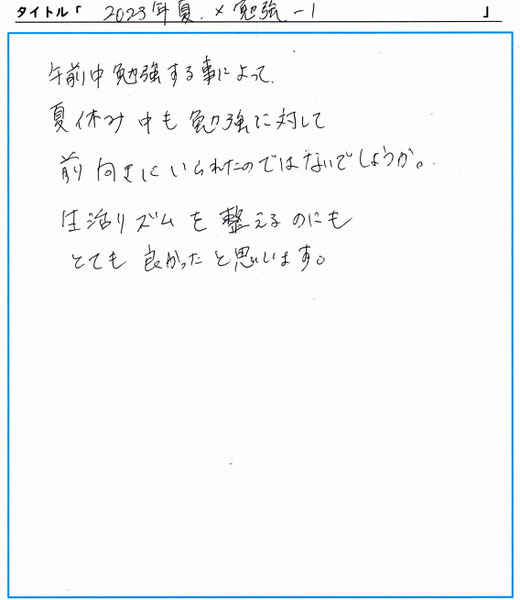 タイトル「 2023年夏 × 勉強-1 」
午前中勉強する事によって、
夏休み中も勉強に対して
前向きにいられたのではないでしょうか。
生活リズムを整えるのにも
とても良かったと思います。